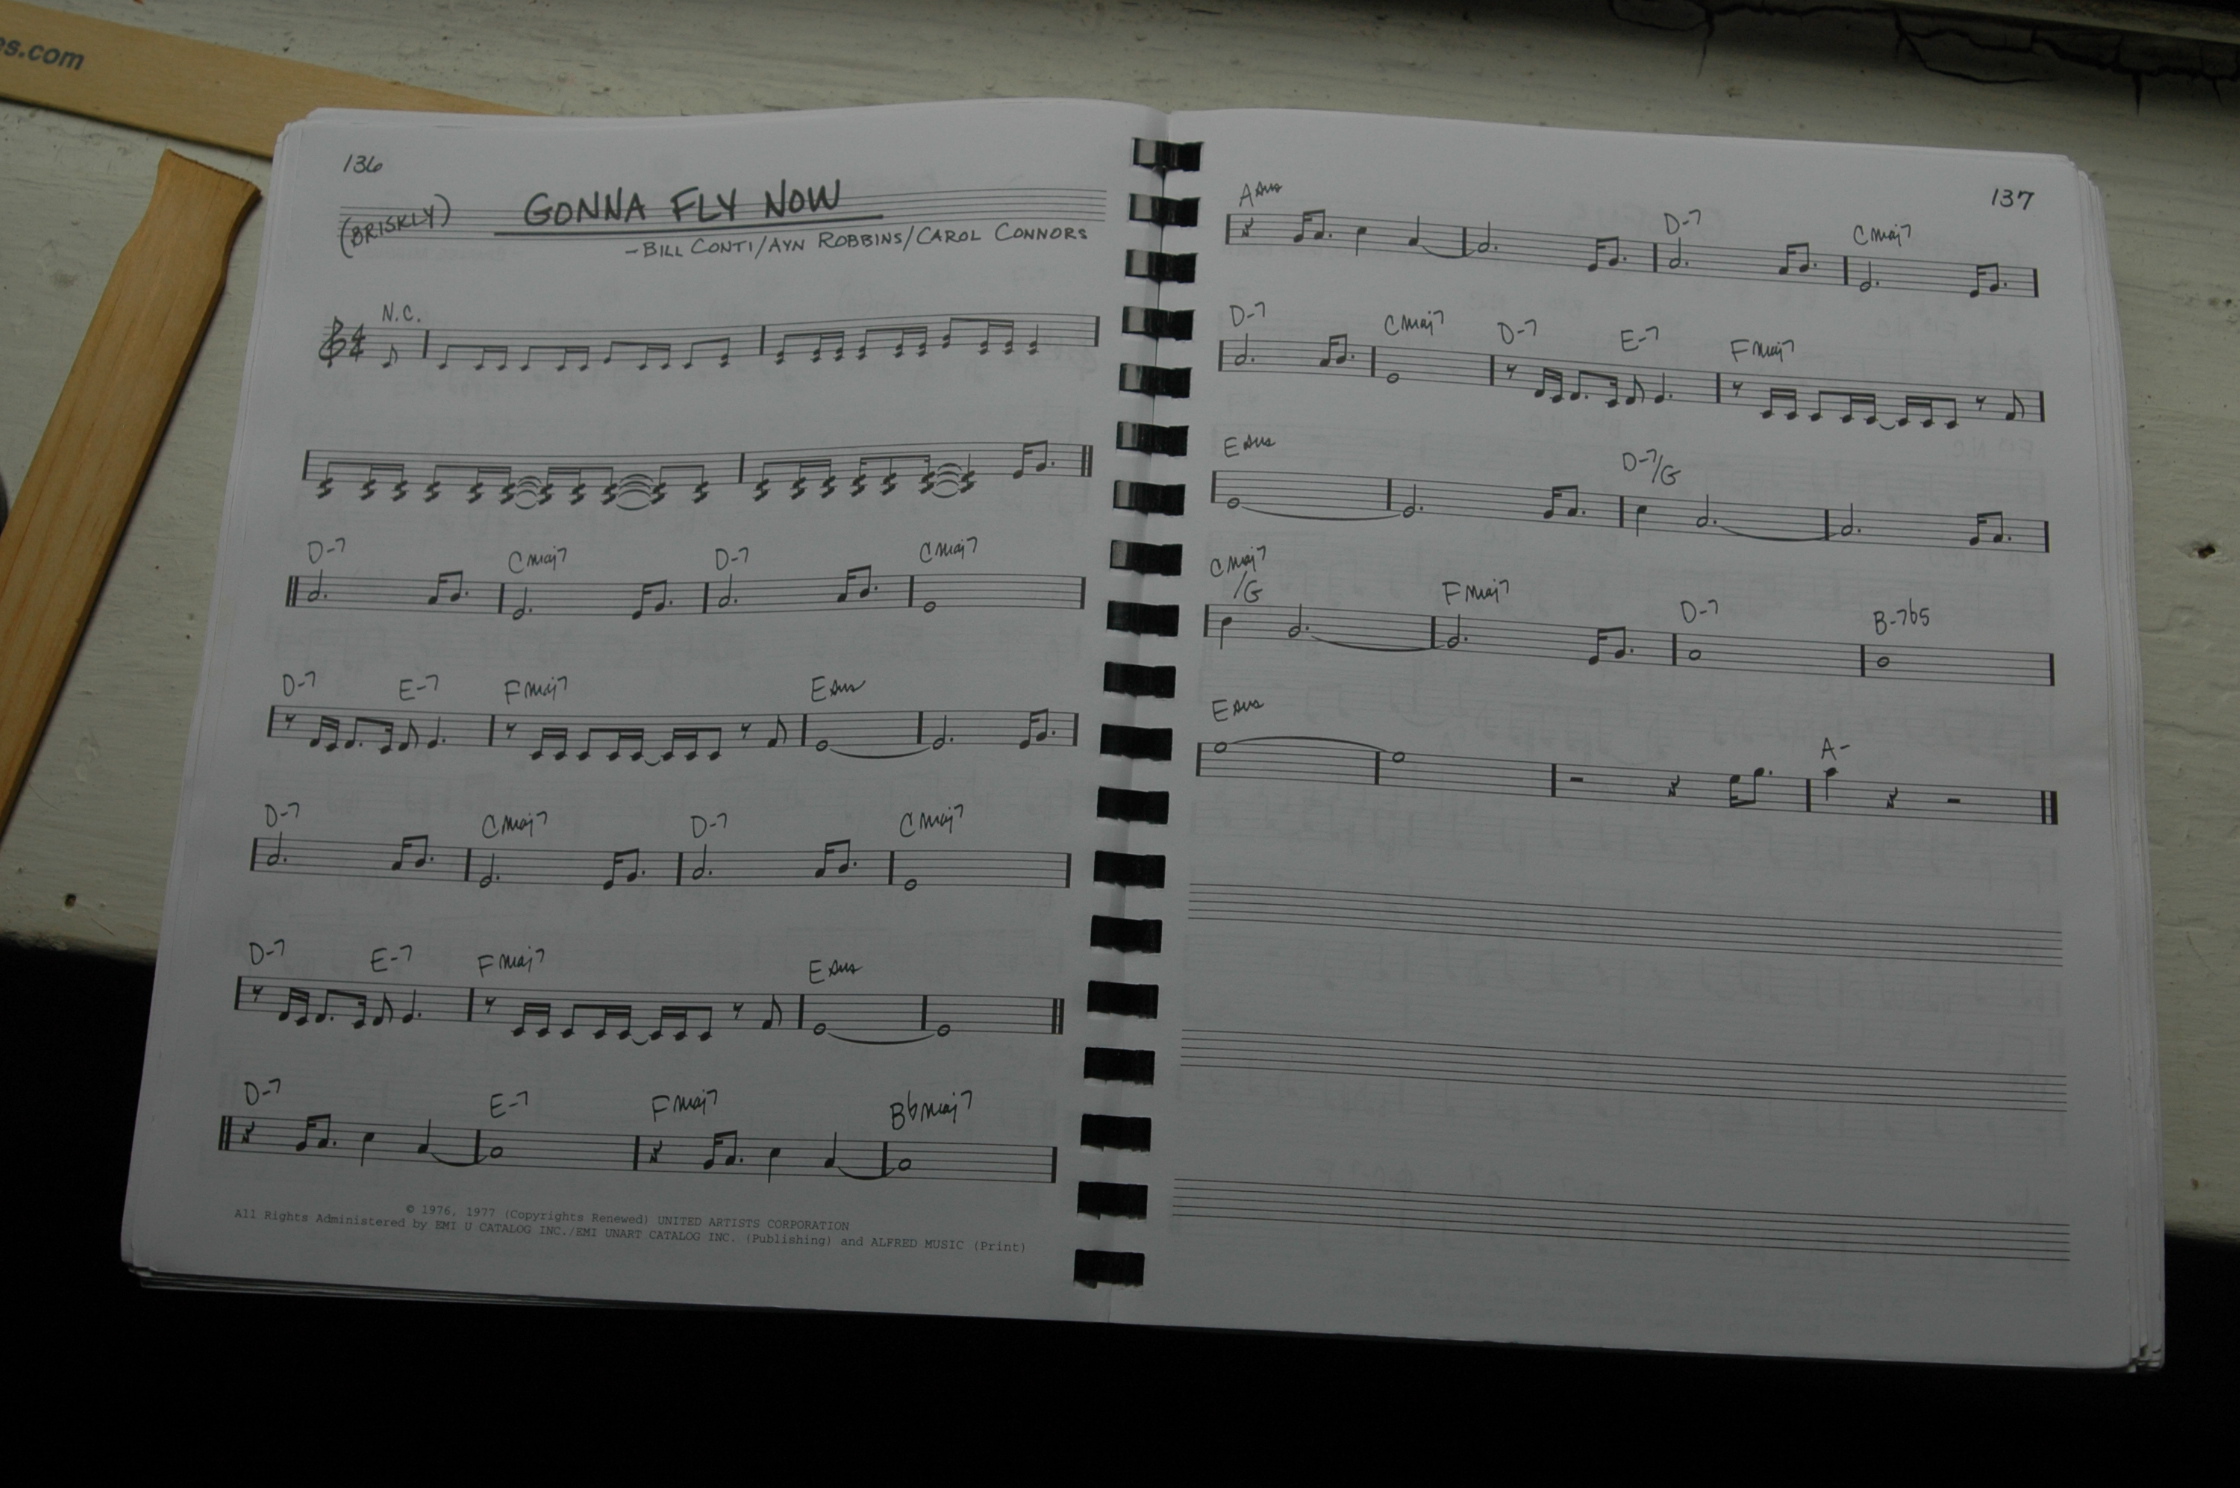 es.com
136
(BRISKLY) GONNA FLY NOW
-BILL CONTI/AYN ROBBINS/CAROL CONNORS
N.C.
D-7 Cmaj7 D-7 Cmaj7
D-7 E-7 Fmaj7 Esus
D-7 Cmaj7 D-7 Cmaj7
D-7 E-7 Fmaj7 Esus
D-7 E-7 Fmaj7 Bbmaj7
© 1976, 1977 (Copyrights Renewed) UNITED ARTISTS CORPORATION
All Rights Administered by EMI U CATALOG INC./EMI UNART CATALOG INC. (Publishing) and ALFRED MUSIC (Print)
137
Asus D-7 Cmaj7
D-7 Cmaj7 D-7 E-7 Fmaj7
Esus D-7/G
Cmaj7
/G Fmaj7 D-7 B-7b5
Esus A-